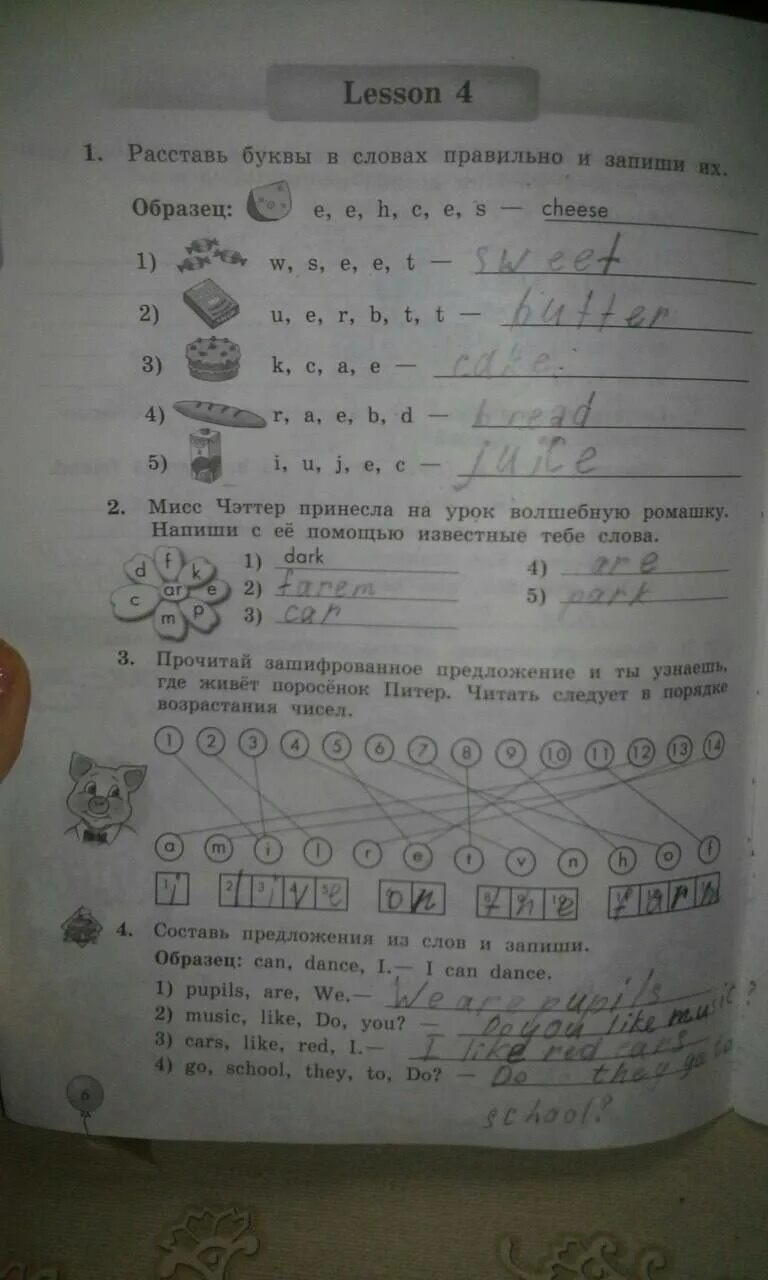 Lesson 4
1. Расставь буквы в словах правильно и запиши их.
Образец: e, e, h, c, e, s — cheese
1) w, s, e, e, t — sweet
2) u, e, r, b, t, t — butter
3) k, c, a, e — cake
4) r, a, e, b, d — bread
5) i, u, j, e, c — juice
2. Мисс Чэттер принесла на урок волшебную ромашку.
Напиши с её помощью известные тебе слова.
d f k c ar e m p
1) dark 4) are
2) farem 5) park
3) car
3. Прочитай зашифрованное предложение и ты узнаешь,
где живёт поросёнок Питер. Читать следует в порядке
возрастания чисел.
1 2 3 4 5 6 7 8 9 10 11 12 13 14
a m i l r e t v n h o f
i live on the farm
4. Составь предложения из слов и запиши.
Образец: can, dance, I.— I can dance.
1) pupils, are, We.— We are pupils
2) music, like, Do, you? — Do you like music?
3) cars, like, red, I.— I like red cars
4) go, school, they, to, Do? — Do they go to
school?
6